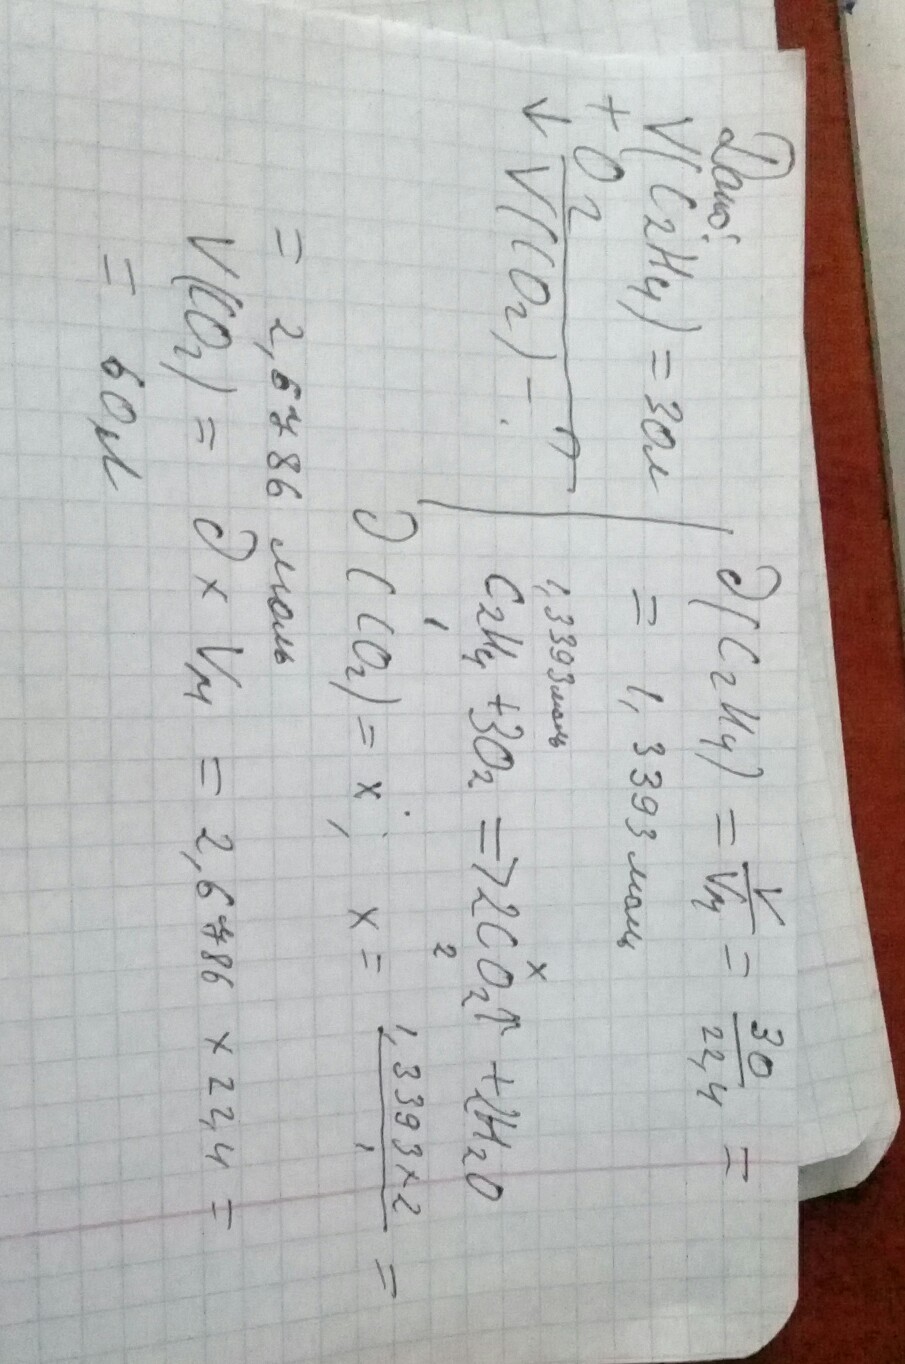 Дано:
V(C₂H₄) = 30л
+ O₂
↓ V(CO₂) - ?
∂(C₂H₄) = V/Vм = 30/22,4 =
= 1,3393 моль
1,3393 моль x
C₂H₄ + 3O₂ => 2CO₂↑ + 2H₂O
1 2
∂(CO₂) = x; x = 1,3393 × 2 / 1 =
= 2,6786 моль
V(CO₂) = ∂ × Vм = 2,6786 × 22,4 =
= 60л